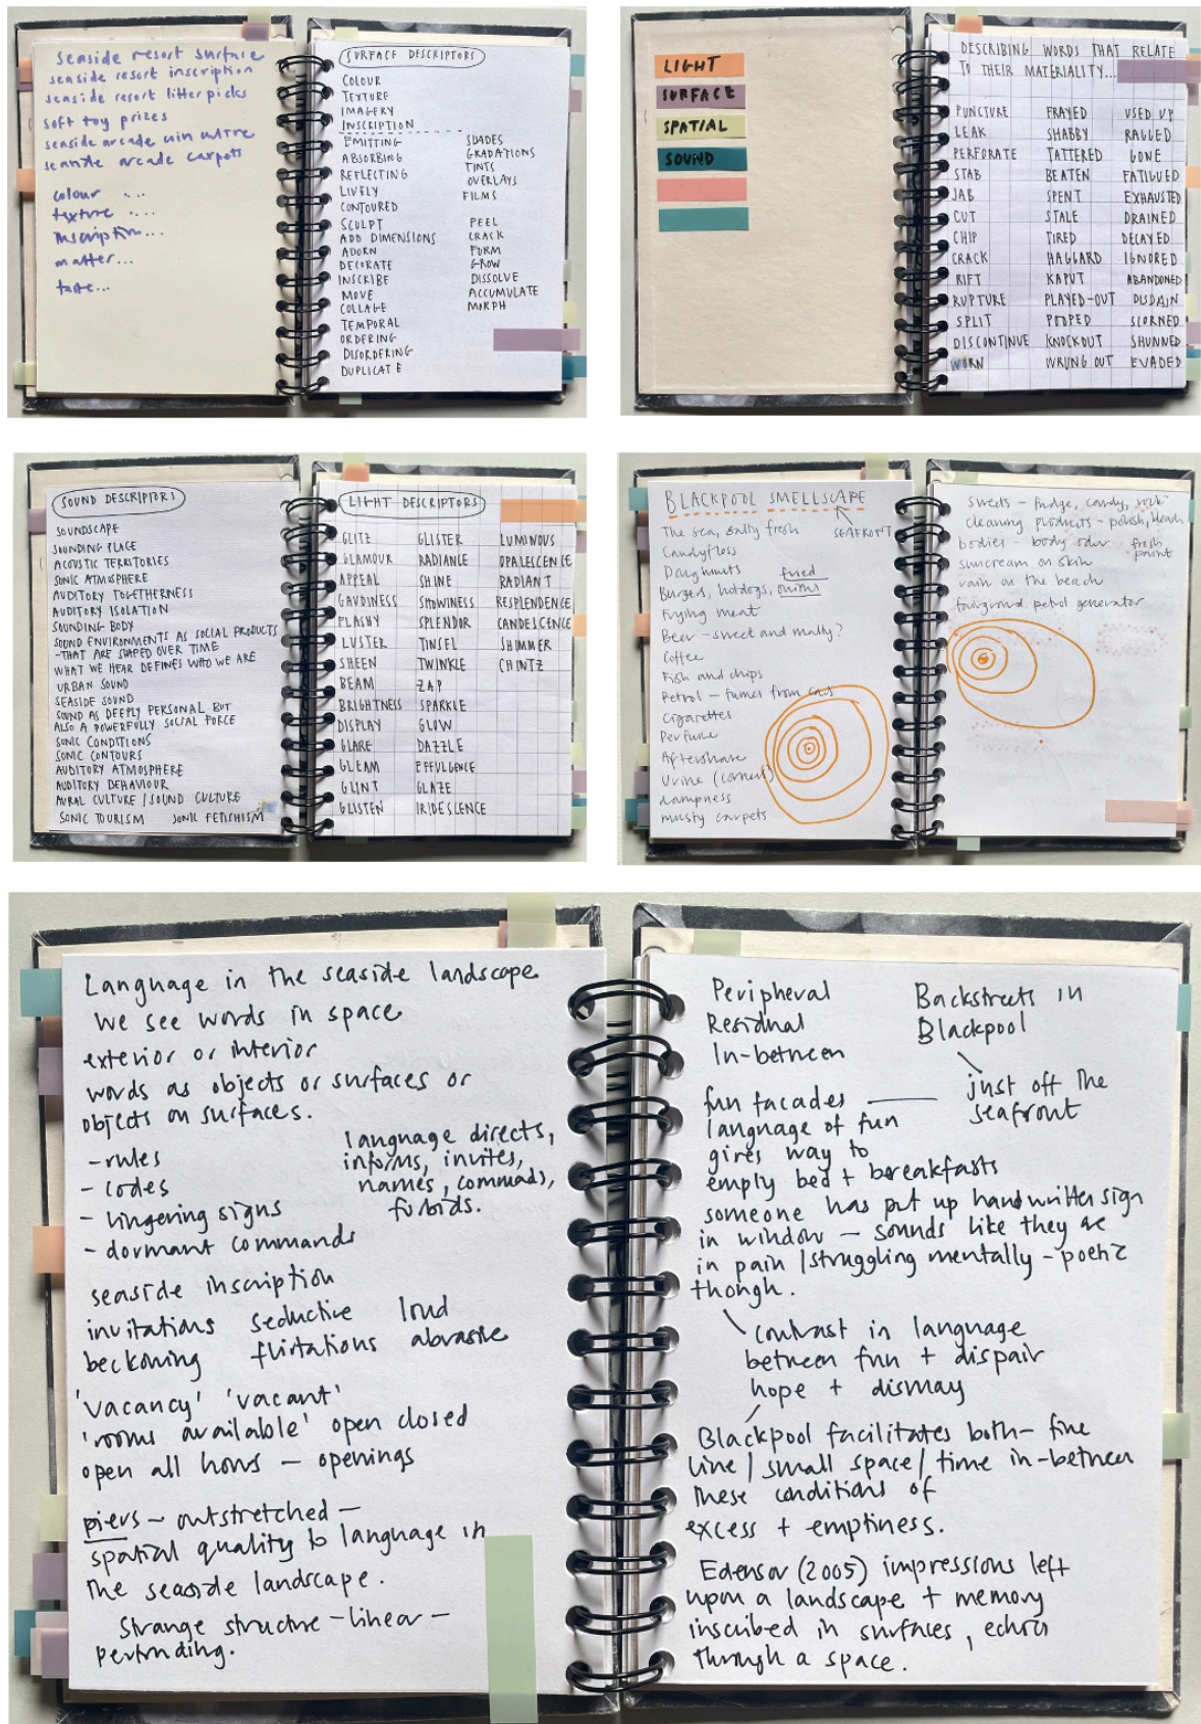 seaside resort surface
seaside resort inscription
seaside resort litter picks
soft toy prizes
seaside arcade coin
seaside arcade carpets
colour ....
texture ....
inscription...
matter...
taste...
SURFACE DESCRIPTORS
COLOUR
TEXTURE
IMAGERY
INSCRIPTION
EMITTING
ABSORBING
REFLECTING
LIVELY
CONTOURED
SCULPT
ADD DIMENSIONS
ADORN
DECORATE
INSCRIBE
MOVE
COLLAGE
TEMPORAL
ORDERING
DISORDERING
DUPLICATE
SHADES
GRADATIONS
TINTS
OVERLAYS
FILMS
PEEL
CRACK
FORM
GROW
DISSOLVE
ACCUMULATE
MORPH
LIGHT
SURFACE
SPATIAL
SOUND
DESCRIBING WORDS THAT RELATE
TO THEIR MATERIALITY...
PUNCTURE FRAYED USED UP
LEAK SHABBY RAGGED
PERFORATE TATTERED GONE
STAB BEATEN FATIGUED
JAB SPENT EXHAUSTED
CUT STALE DRAINED
CHIP TIRED DECAYED
CRACK HAGGARD IGNORED
RIFT KAPUT ABANDONED
RUPTURE PLAYED-OUT DISDAIN
SPLIT POOPED SCORNED
DISCONTINUE KNOCKOUT SHUNNED
WORN WRUNG OUT EVADED
SOUND DESCRIPTORS
SOUNDSCAPE
SOUNDING PLACE
ACOUSTIC TERRITORIES
SONIC ATMOSPHERE
AUDITORY TOGETHERNESS
AUDITORY ISOLATION
SOUNDING BODY
SOUND ENVIRONMENTS AS SOCIAL PRODUCTS
- THAT ARE SHAPED OVER TIME
WHAT WE HEAR DEFINES WHO WE ARE
URBAN SOUND
SEASIDE SOUND
SOUND AS DEEPLY PERSONAL BUT
ALSO A POWERFULLY SOCIAL FORCE
SONIC CONDITIONS
SONIC CONTOURS
AUDITORY ATMOSPHERE
AUDITORY BEHAVIOUR
AURAL CULTURE / SOUND CULTURE
SONIC TOURISM SONIC FETISHISM
LIGHT DESCRIPTORS
GLITZ GLISTER LUMINOUS
GLAMOUR RADIANCE OPALESCENCE
APPEAL SHINE RADIANT
GAUDINESS SHOWINESS RESPLENDENCE
FLASHY SPLENDOR CANDESCENCE
LUSTER TINSEL SHIMMER
SHEEN TWINKLE CHINTZ
BEAM ZAP
BRIGHTNESS SPARKLE
DISPLAY GLOW
GLARE DAZZLE
GLEAM EFFULGENCE
GLINT GLAZE
GLISTEN IRIDESCENCE
BLACKPOOL SMELLSCAPE
SEAFRONT
The sea, salty fresh
Candyfloss
Doughnuts
Burgers, hotdogs, fried onions
Frying meat
Beer - sweet and malty?
Coffee
Fish and chips
Petrol - fumes from cars
Cigarettes
Perfume
Aftershave
Urine (corners)
dampness
musty carpets
sweets - fudge, candy, rock
cleaning products - polish, bleach
bodies - body odour fresh paint
suncream on skin
rain on the beach
fairground, petrol generator
Language in the seaside landscape
We see words in space
exterior or interior
words as objects or surfaces or
objects on surfaces.
- rules
- codes
- lingering signs
- dormant commands
language directs,
informs, invites,
names, commads,
forbids.
seaside inscription
invitations seductive loud
beckoning flirtations abrasive
'vacancy' 'vacant'
'rooms available' open closed
open all hours - openings
piers - outstretched -
spatial quality to language in
the seaside landscape.
Strange structure - linear -
pertruding.
Peripheral
Residual
In-between
Backstreets in
Blackpool
just off the
seafront
fun facades
language of fun
gives way to
empty bed + breakfasts
someone has put up handwritten sign
in window - sounds like they are
in pain / struggling mentally - poetic
though.
contrast in language
between fun + dispair
hope + dismay
Blackpool facilitates both - fine
line / small space / time in-between
these conditions of
excess + emptiness.
Edensor (2005) impressions left
upon a landscape + memory
inscribed in surfaces, echoes
through a space.